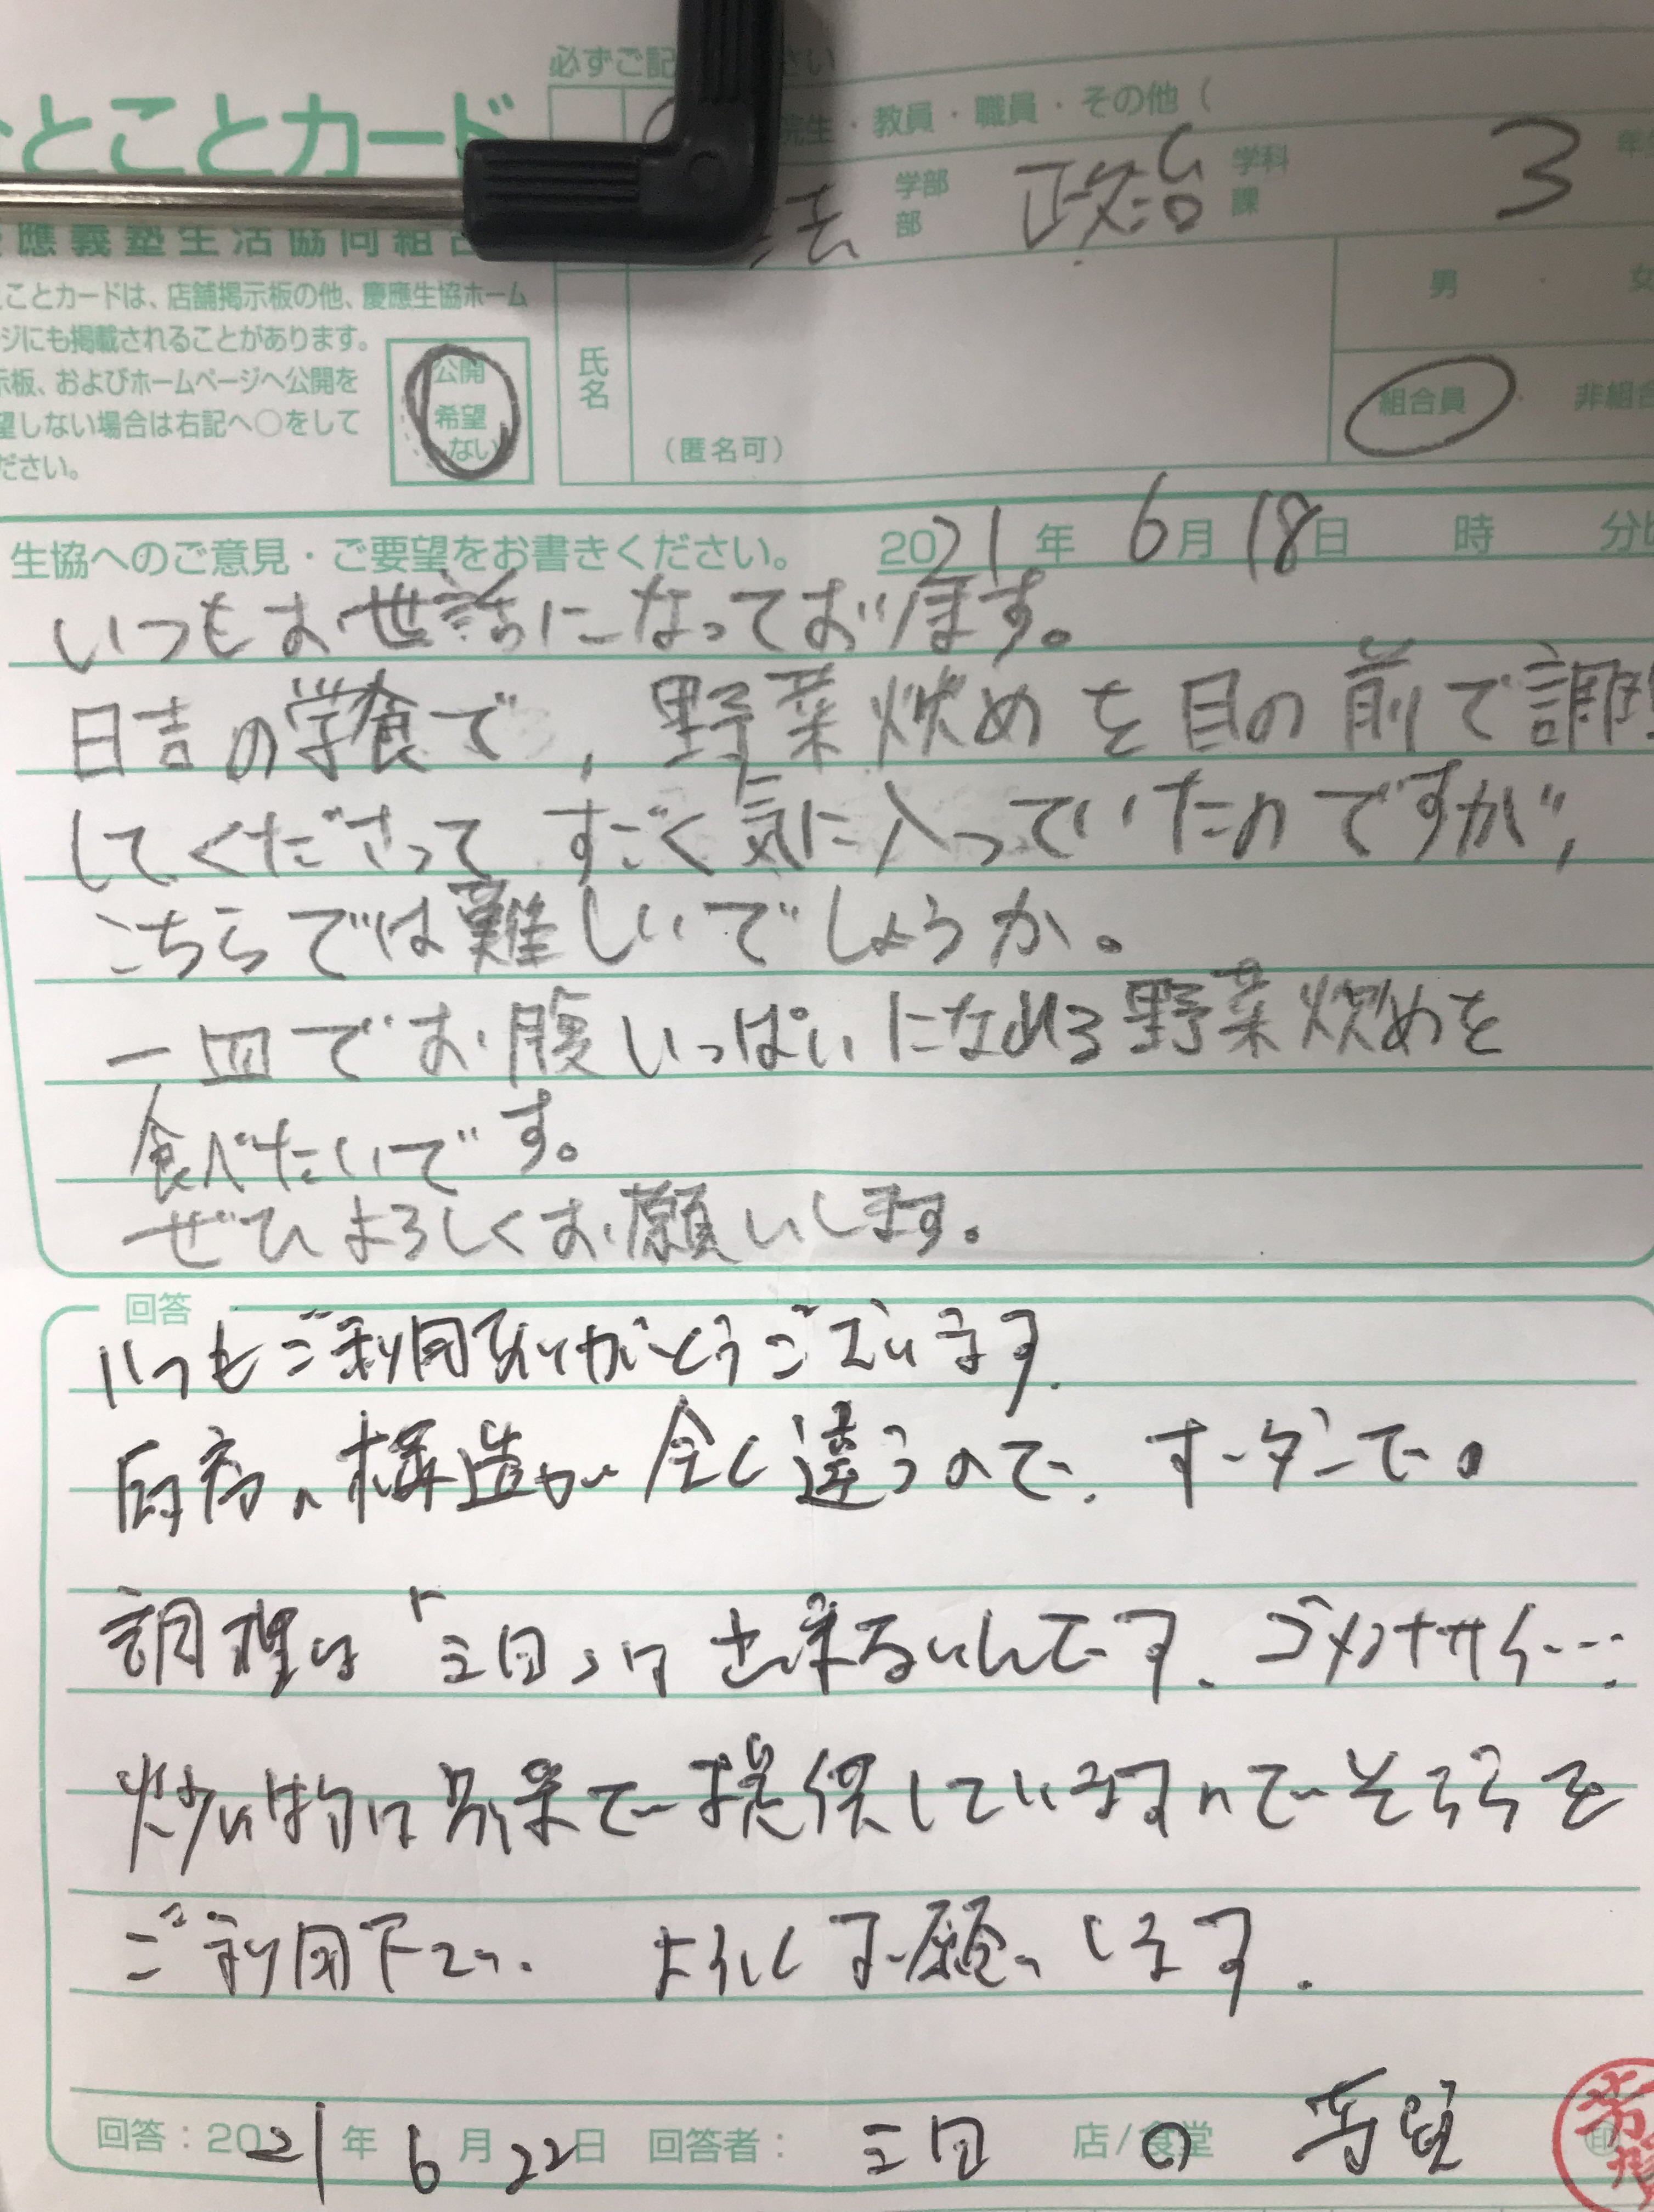 必ずご記 さい
とことカード
院生・教員・職員・その他(
法 学部 部 政治 学科 課 3 年
應義塾生活協同組合
ことカードは、店舗掲示板の他、慶應生協ホーム
ジにも掲載されることがあります。
示板、およびホームページへ公開を
望しない場合は右記へ○をして
ださい。
公開
希望
ない
氏名
(匿名可)
男 ・ 女
組合員 ・ 非組合
生協へのご意見・ご要望をお書きください。 2021年 6月 18日 時 分
いつもお世話になっております。
日吉の学食で、野菜炒めを目の前で調
してくださって すごく気に入っていたのですが、
こちらでは難しいでしょうか。
一皿でお腹いっぱいになれる野菜炒めを
食べたいです。
ぜひよろしくお願いします。
回答
いつもご利用ありがとうございます.
厨房の構造が全く違うので、オーダーでの
調理は「三田」は出来ないんです。ゴメンナサイ…
炒め物は別菜で提供していますのでそちらを
ご利用下さい. よろしくお願いします.
回答:2021年 6月 22日 回答者: 三田 店/食堂